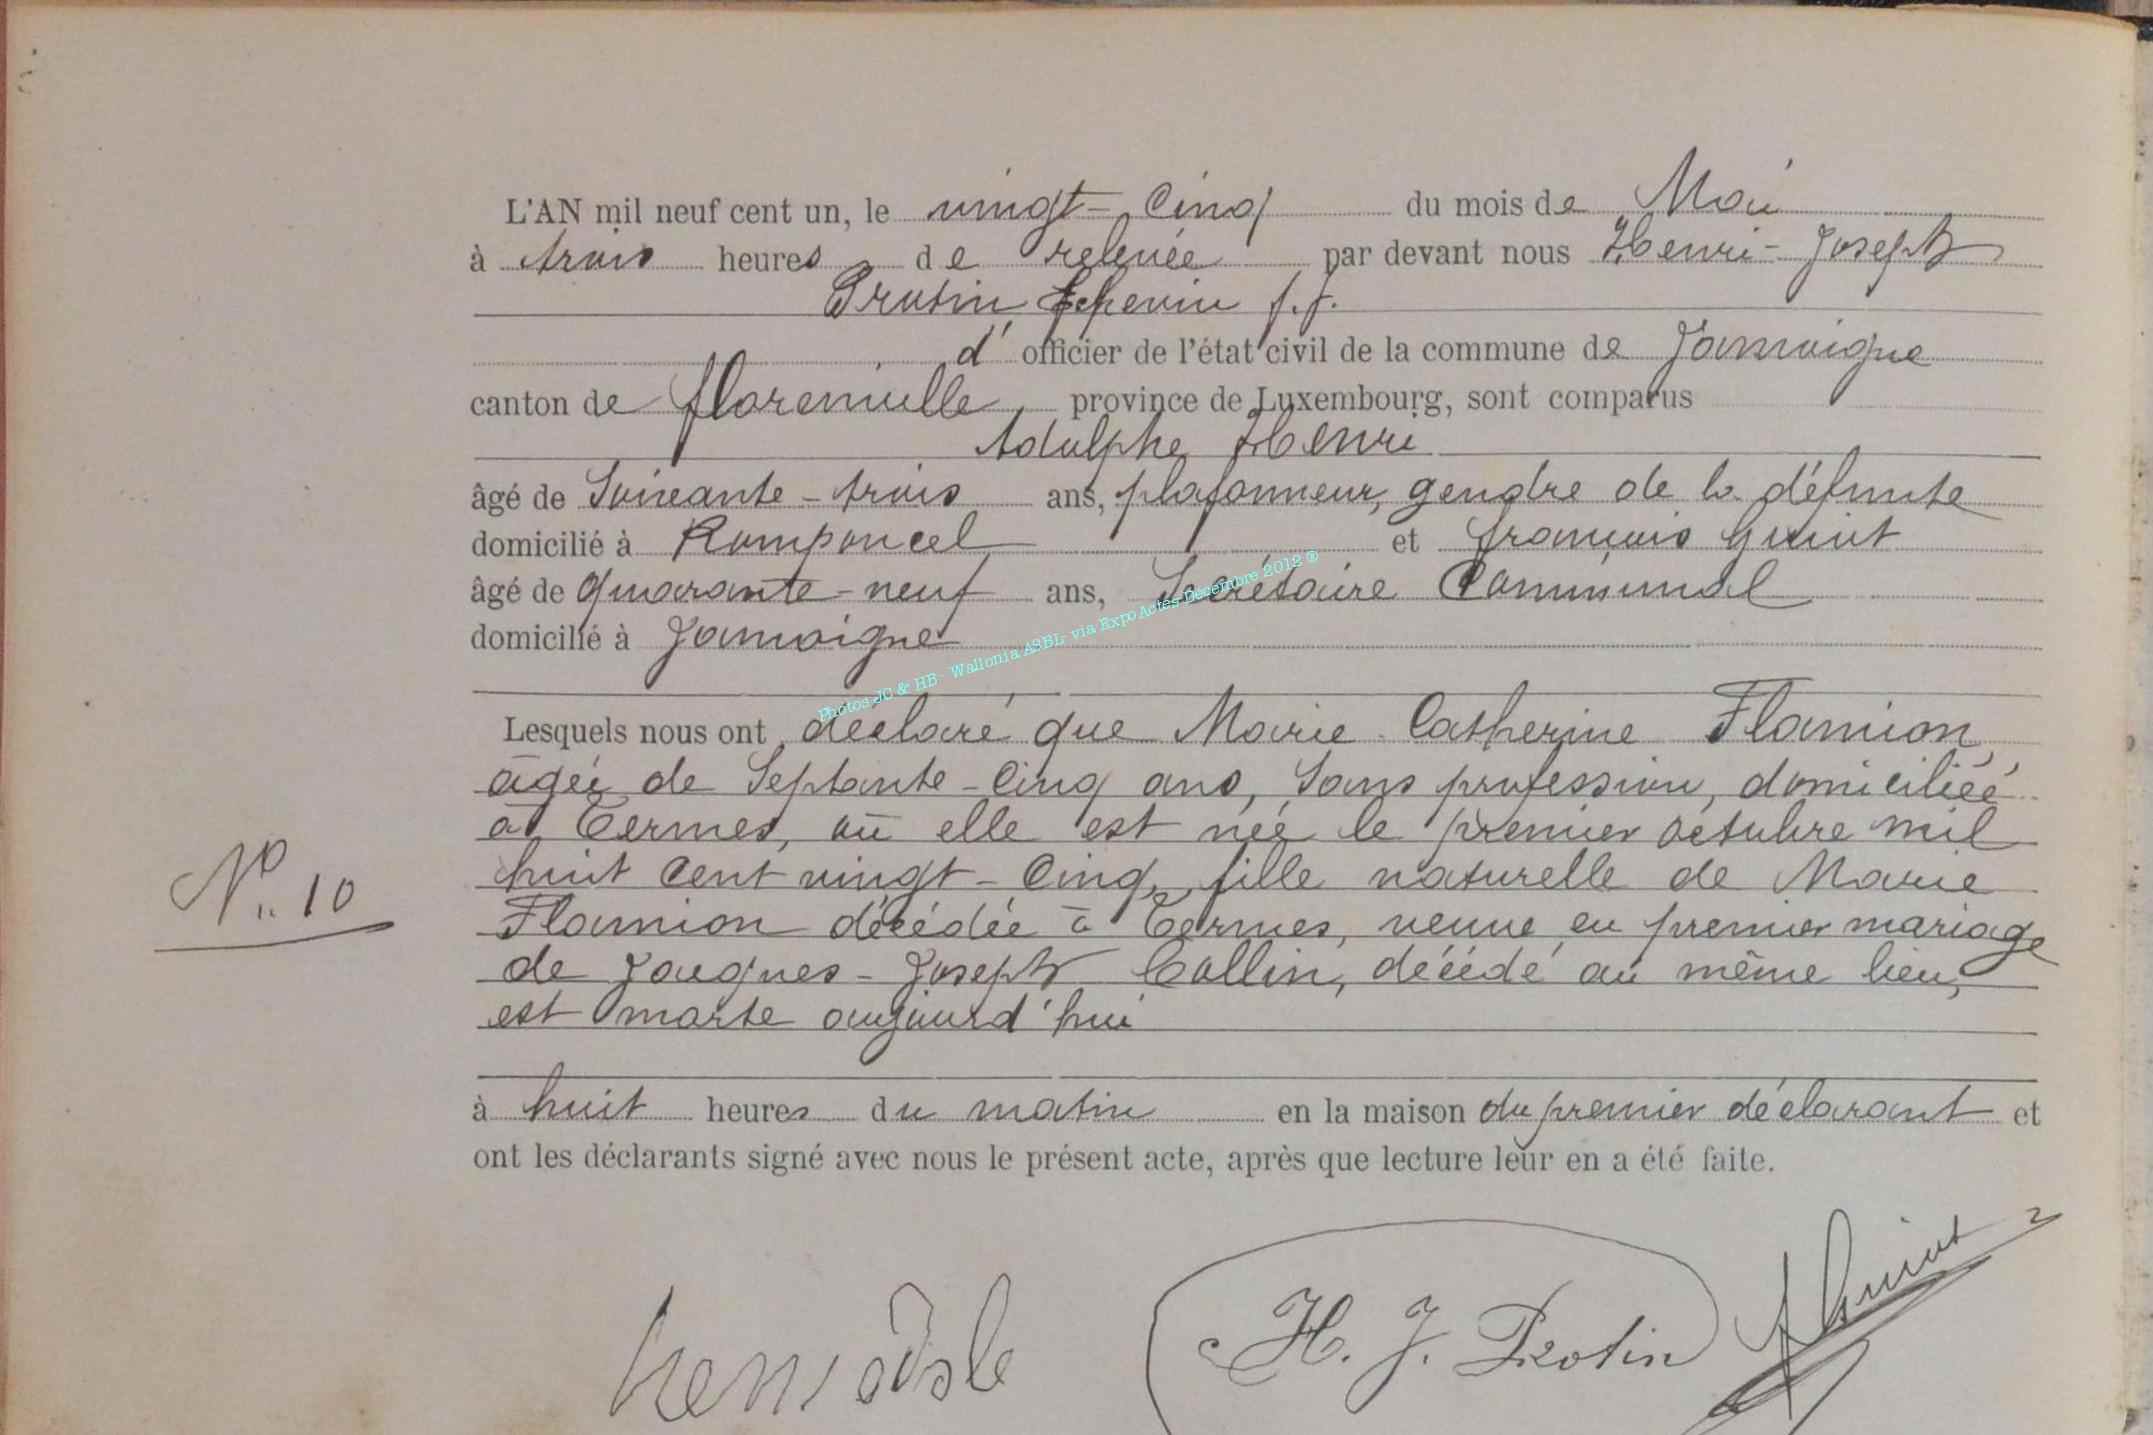 L'AN mil neuf cent un, le vingt-Cinq du mois de Mai
à trois heures de relevée par devant nous Henri-Joseph
Protin Echevin f.f.
d' officier de l'état civil de la commune de Jamoigne
canton de florenville, province de Luxembourg, sont comparus
Adolphe Henri
âgé de Soixante-trois ans, plafonneur, gendre de la défunte
domicilié à Romponcel et françois Guiot
âgé de quarante-neuf ans, Secrétaire Communal
domicilié à Jamoigne
Photos JC & HB - Wallonia ASBL- via Expo Actes Décembre 2012 ®
Lesquels nous ont déclaré que Marie Catherine Flamion,
âgée de Septante-Cinq ans, Sans profession, domiciliée
à Termes, où elle est née le premier octobre mil
huit Cent vingt-Cinq, fille naturelle de Marie
N° 10
Flamion décédée à Termes, veuve en premier mariage
de Jacques-Joseph Collin, décédé au même lieu,
est morte aujourd'hui
à huit heures du matin en la maison du premier déclarant et
ont les déclarants signé avec nous le présent acte, après que lecture leur en a été faite.
H. J. Protin